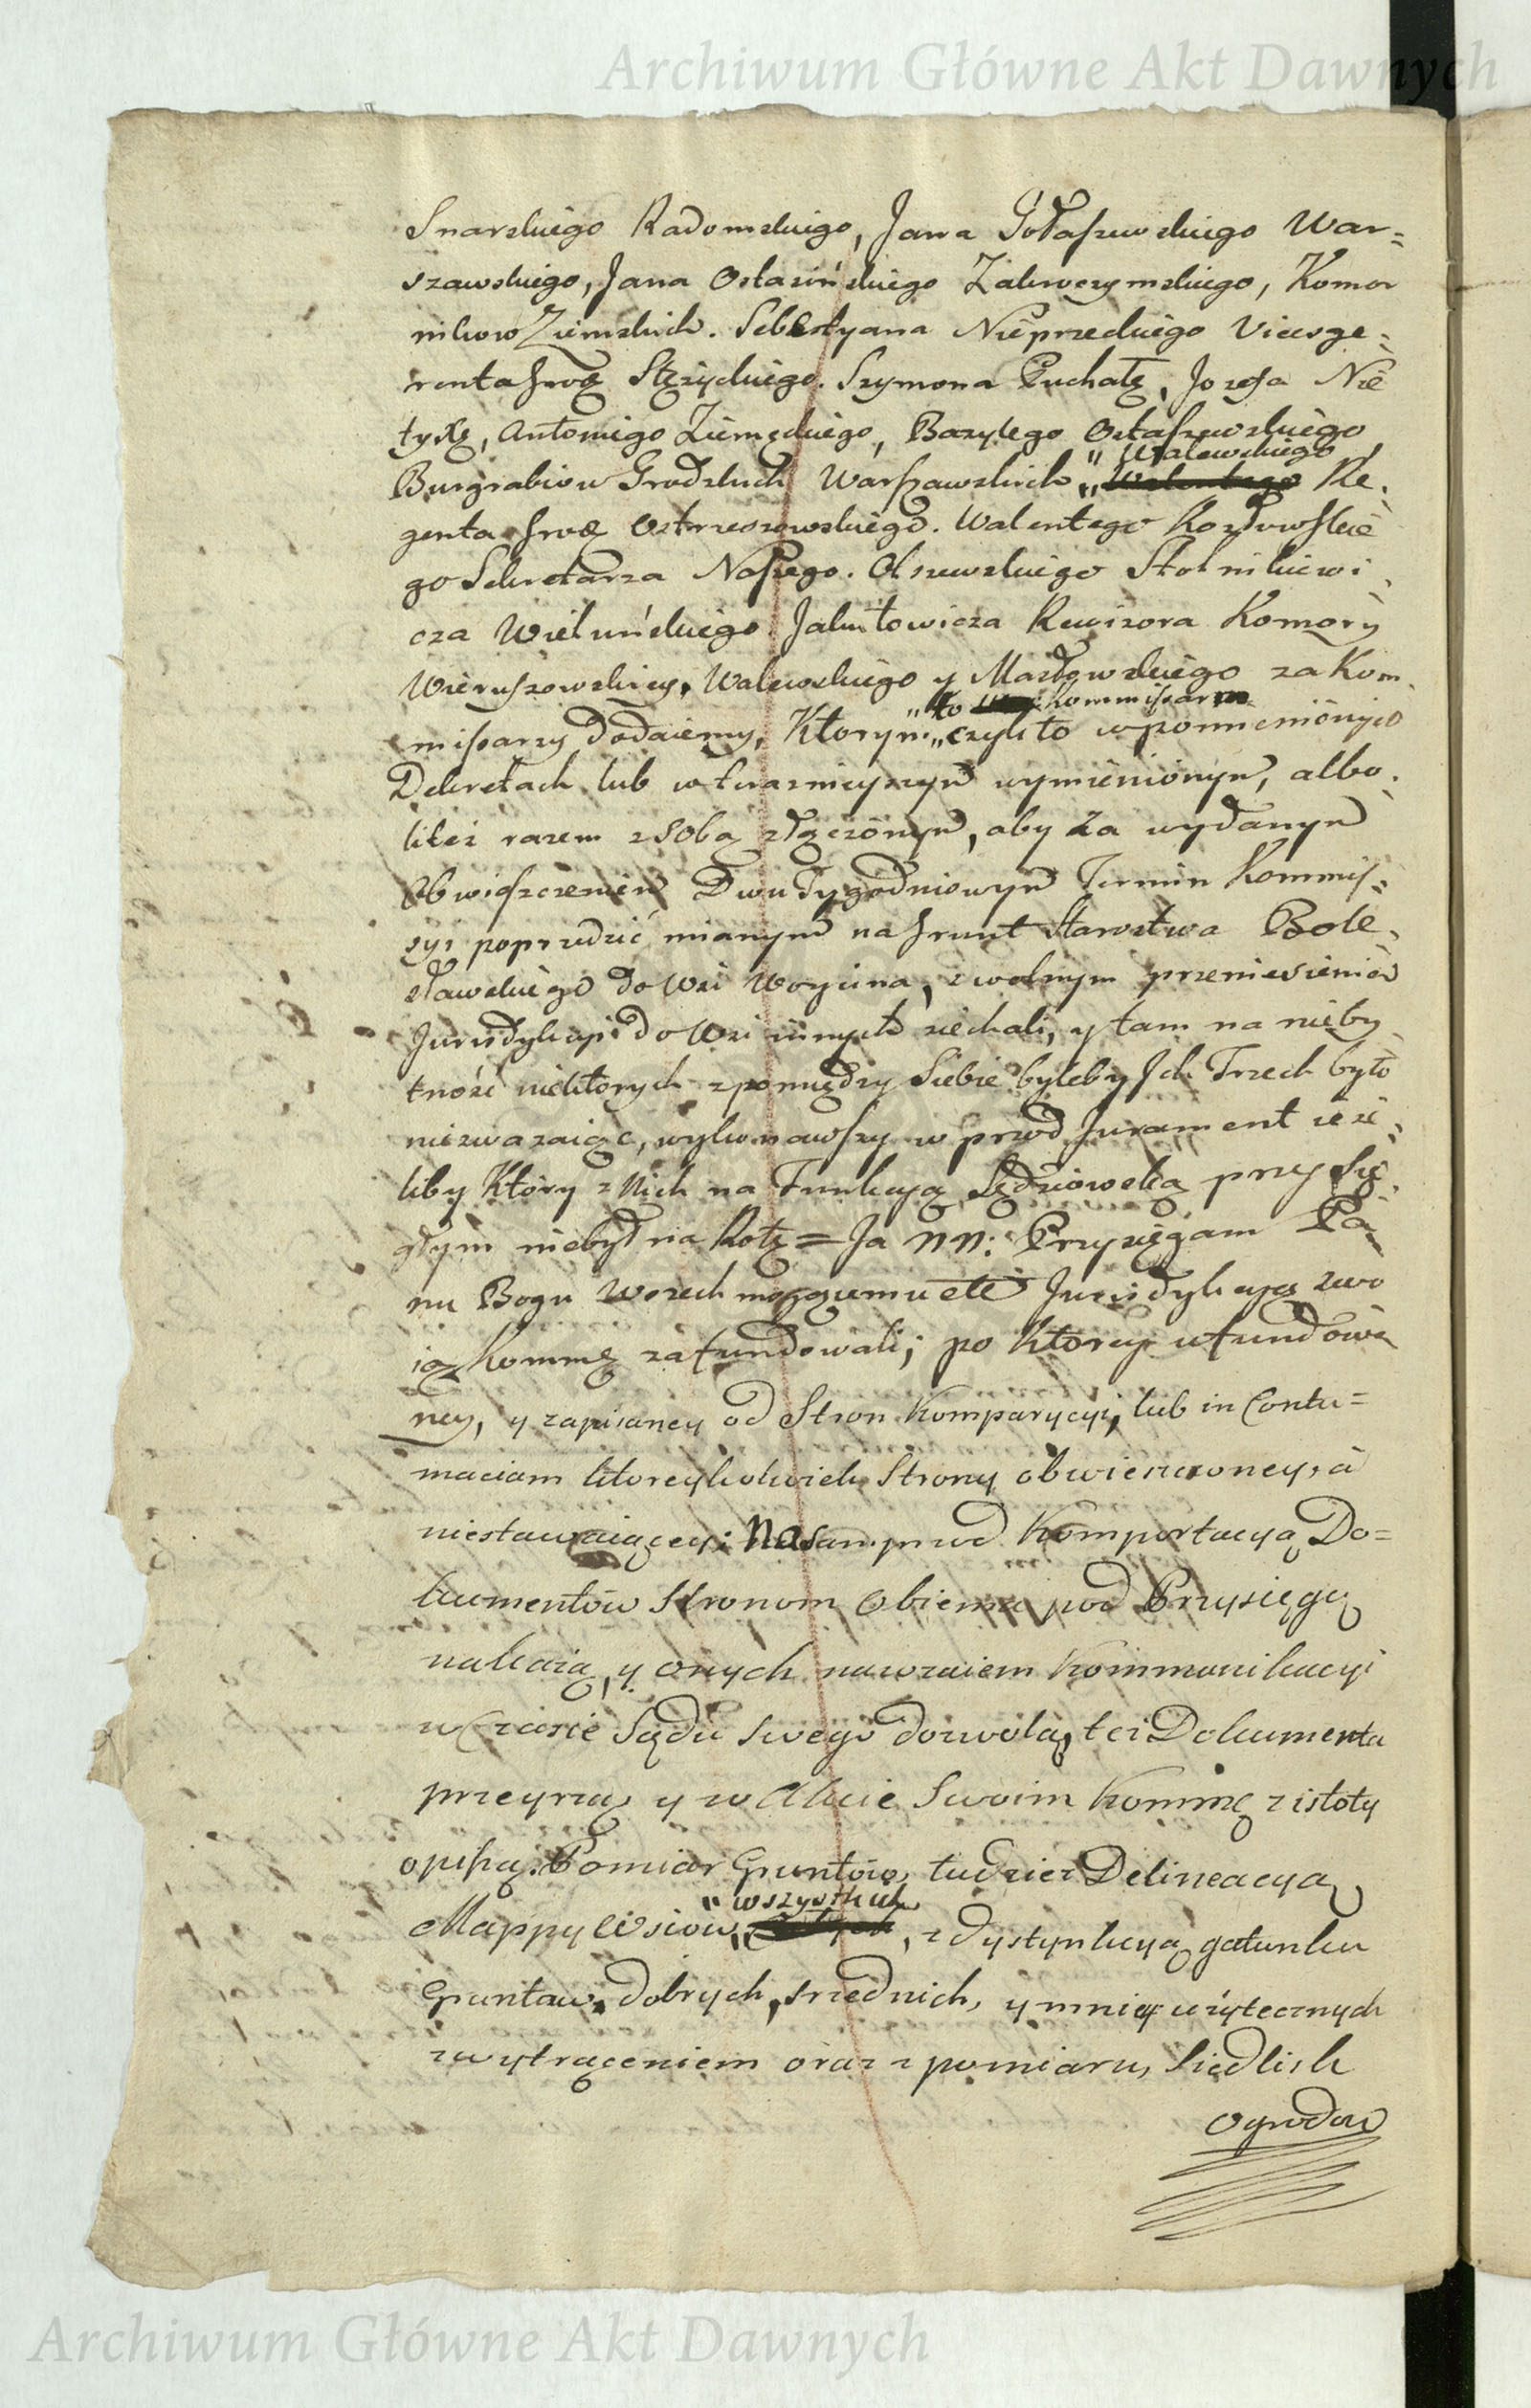 Archiwum Główne Akt Dawnych
Snarskiego Radomskiego, Jana Gołaszewskiego War=
szawskiego, Jana Ostasińskiego Zakroczymskiego, Komor
nikow Ziemskich. Sebestyana Nieprzeckiego Vicesge=
renta Grod̃ Stężyckiego. Szymona Puchałę, Jozefa Nie
tyxę, Antoniego Ziemęckiego, Bazylego Ostaszewskiego
" Walewskiego
Burgrabiow Grodzkich Warszawskich " Re=
genta Ostrzeszowskiego. Walentego Kozłowskie
go Sekretarza Naszego. Olszewskiego Stolnikiewi
cza Wieluńskiego. Jakutowicza Rewizora Komory
Wieruszowskiey, Walewskiego y Masłowskiego za Kom
" to kommissarzom
missarzy dodaiemy, Ktorym " czyli to w pomienionych
Dekretach lub w teraznieyszym wymienionym, albo=
liteż razem z sobą złączonym, aby za wydanym
Obwieszczeniem DwuTygodniowym Termin Kommis=
syi poprzedzić mianym na Grunt Starostwa Bole=
sławskiego do Wsi Woycina, z wolnym przeniesieniem
Jurisdykcyi do Wsi innych ziechali, y tam na nieby
tność niektorych z pomiędzy Siebie byleby Ich Trzech było
niezwazaiąc, wykonawszy w przod Jurament ieże=
liby Ktory z Nich na Funkcyą Sędziowską przysię=
głym niebył na Rotę = Ja NN: Przysięgam Pa
nu Bogu Wszechmogącemu etc Jurisdykcyą swo
ią Kommę zafundowali; po Ktorey ufundowa
ney, y zapisaney od Stron Komparycyi, lub in Contu=
maciam ktoreykolwiek Strony obwieszczoney, a
niestawaiącey: Nasamprzod Komportacyą Do=
kumentów Stronom Obiema pod Przysięgą
nakażą, y onych nawzaiem Kommunikacyi
w Czasie Sądu swego dozwolą, też Dokumenta
przeyrzą y w Akcie Swoim Kommę z istoty
opiszą. Pomiar Gruntów, tudzież Delineacyą
" wszystkich
Mappy Wsiow " , z dystynkcyą gatunku
Gruntow, dobrych, srzednich, y mniey użytecznych
z wytrąceniem oraz z pomiaru, Siedlisk
Ogrodow
Archiwum Główne Akt Dawnych